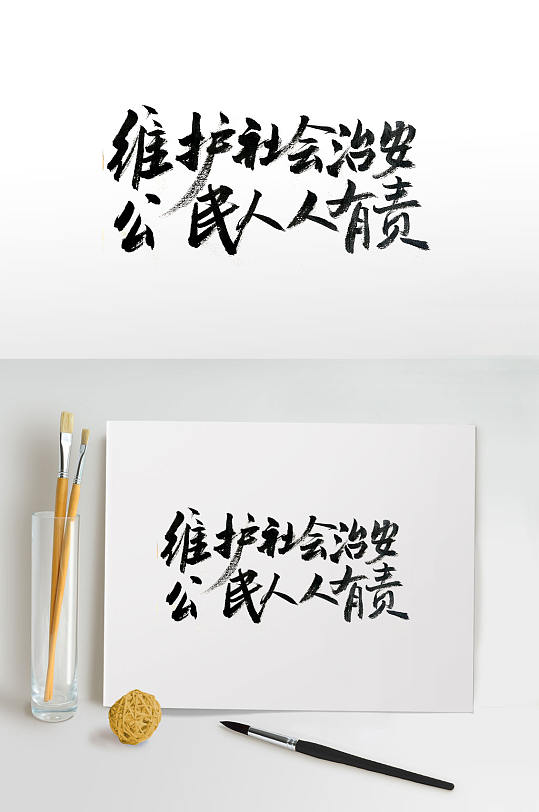 维护社会治安
公民人人有责
维护社会治安
公民人人有责